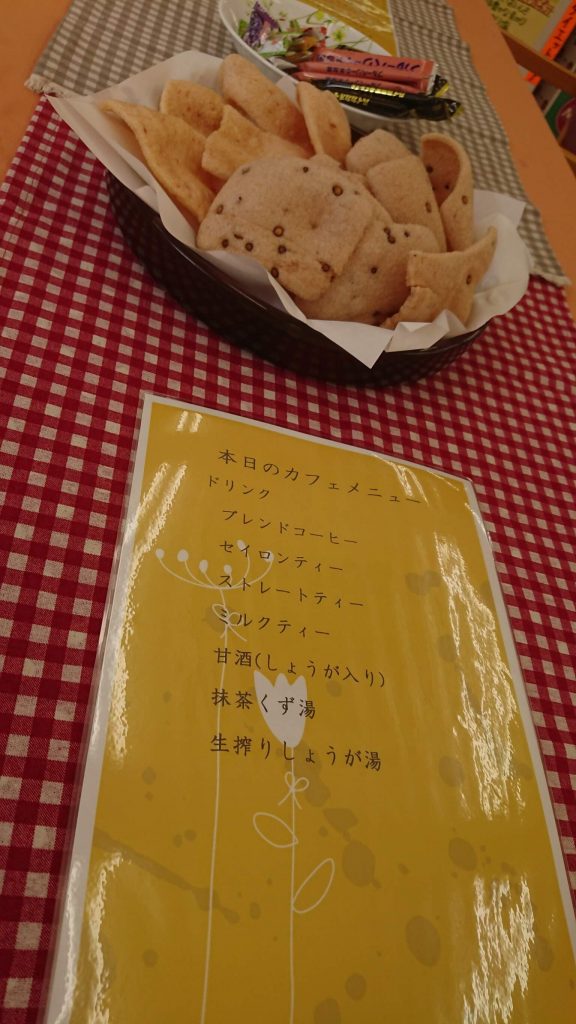 本日のカフェメニュー
ドリンク
ブレンドコーヒー
セイロンティー
ストレートティー
ミルクティー
甘酒(しょうが入り)
抹茶くず湯
生搾りしょうが湯